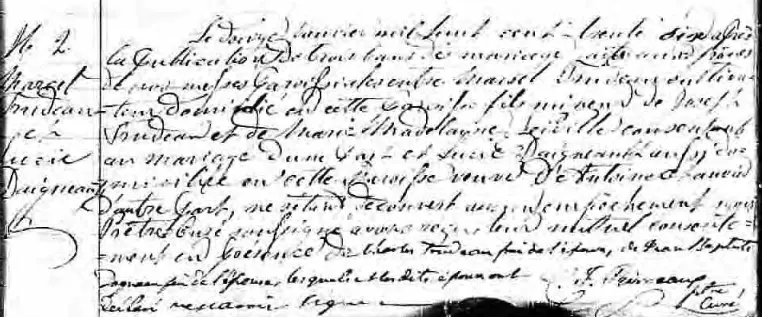 M. 2
Marcel
Trudeau
et
Lucie
Daigneau
Le douze Janvier mil huit cent trente six après
la publication de trois bans de mariage faite aux prônes
de nos messes Paroissiales entre Marcel Trudeau
domicilié en cette Paroisse fils mineur de Joseph
Trudeau et de Marie Madelaine consentant
au mariage d'une part et Lucie Daigneault aussi do-
miciliée en cette Paroisse veuve d'Antoine
d'autre part, ne s'étant découvert aucun empêchement nous
Prêtre Curé soussigné avons reçu leur mutuel consente-
=ment en présence de Charles Trudeau de l'époux, de Jean Baptiste
de l'épouse, lesquels et les dits époux ont
déclaré ne savoir signer
ptre
Curé